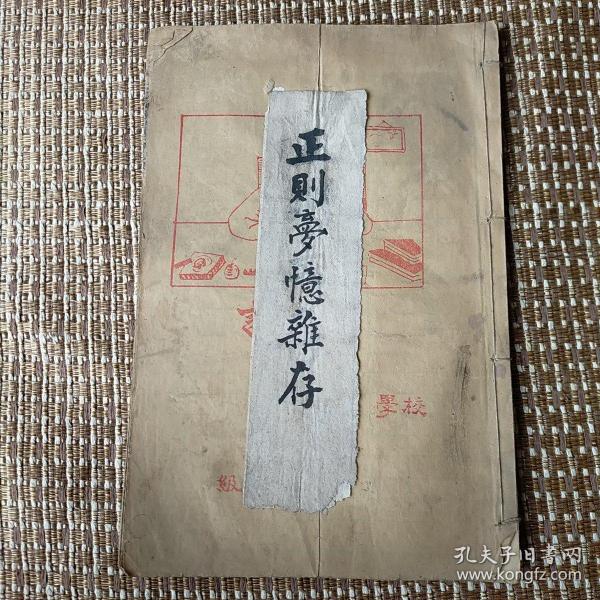 正則夢憶雜存
學校
級
孔夫子旧书网
www.kongfz.com